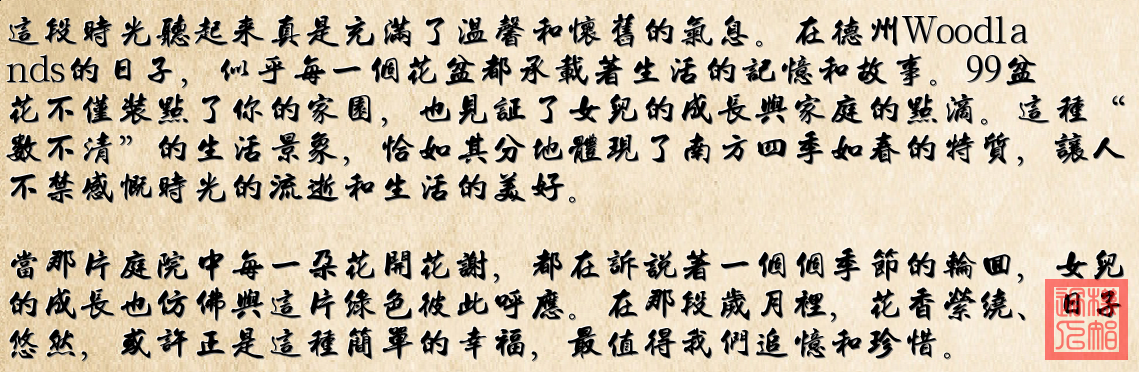 這段時光聽起來真是充滿了溫馨和懷舊的氣息。在德州Woodla
nds的日子，似乎每一個花盆都承載著生活的記憶和故事。99盆
花不僅裝點了你的家園，也見証了女兒的成長與家庭的點滴。這種“
數不清”的生活景象，恰如其分地體現了南方四季如春的特質，讓人
不禁感慨時光的流逝和生活的美好。
當那片庭院中每一朵花開花謝，都在訴說著一個個季節的輪回，女兒
的成長也仿佛與這片綠色彼此呼應。在那段歲月裡，花香縈繞、日子
悠然，或許正是這種簡單的幸福，最值得我們追憶和珍惜。